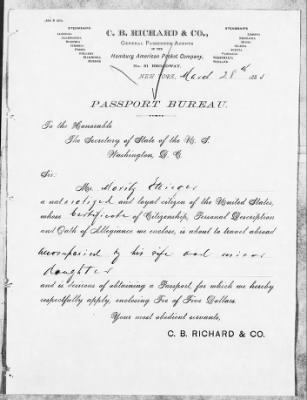 STEAMSHIPS
C. B. RICHARD & CO.,
STEAMSHIPS
GENERAL PASSENGER AGENTS
OF THE
Hamburg American Packet Company,
No. 61 BROADWAY,
NEW YORK, March 28th
PASSPORT BUREAU.
To the Honorable
The Secretary of State of the U. S.
Washington, D. C.
Sir:
Mr. Moritz
a naturalized and loyal citizen of the United States,
whose Certificate of Citizenship, Personal Description
and Oath of Allegiance we enclose, is about to travel abroad
accompanied by his wife and minor
daughter
and is desirous of obtaining a Passport for which we hereby
respectfully apply, enclosing Fee of Five Dollars.
Your most obedient servants,
C. B. RICHARD & CO.